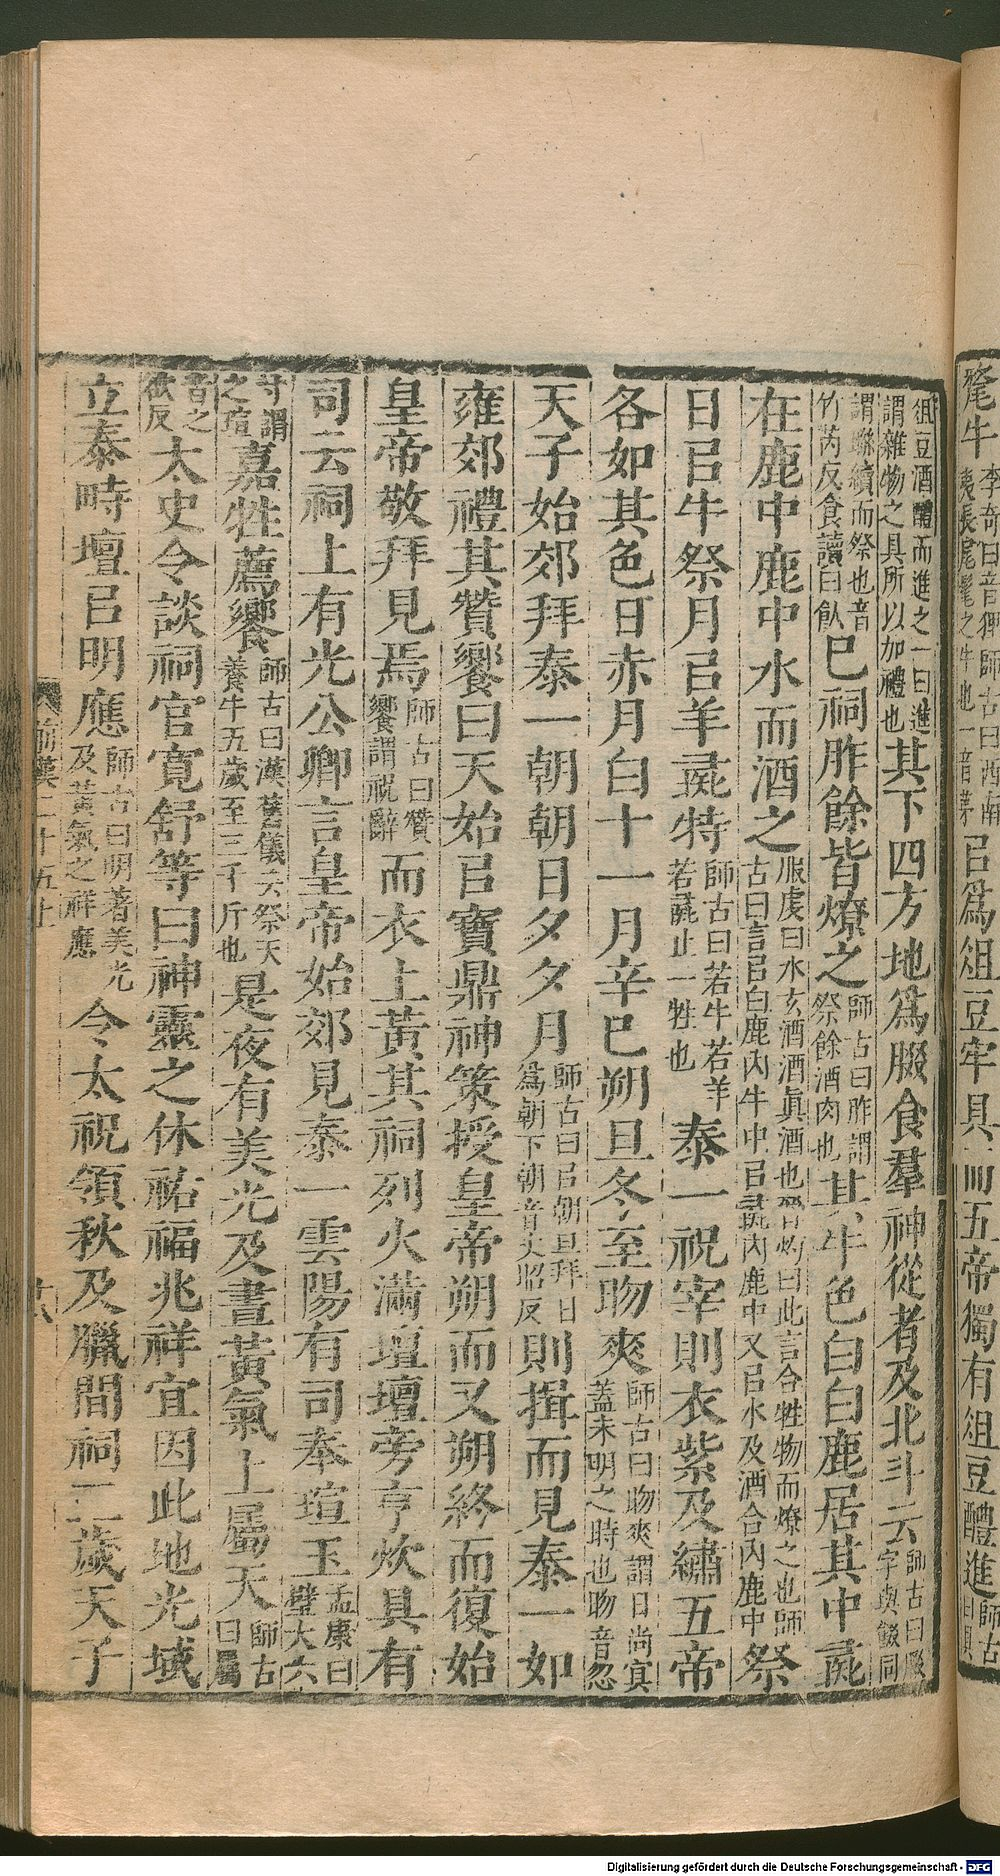 氂牛李奇曰音貍師古曰西南夷長尾髦之牛也一音茅㠯爲俎豆牢具而五帝獨有俎豆醴進師古曰具
俎豆酒醴而進之一曰進謂雜物之具所以加禮也其下四方地爲腏食羣神從者及北斗云師古曰腏字與餟同
謂聯續而祭也音竹芮反食讀曰飤已祠胙餘皆燎之師古曰胙謂祭餘酒肉也其牛色白白鹿居其中彘
在鹿中鹿中水而酒之服虔曰水玄酒酒眞酒也晉灼曰此言合牲物而燎之也師古曰言㠯白鹿內牛中㠯彘內鹿中又㠯水及酒合內鹿中祭
日㠯牛祭月㠯羊彘特師古曰若牛若羊若彘止一牲也泰一祝宰則衣紫及繡五帝
各如其色日赤月白十一月辛巳朔旦冬至昒爽師古曰昒爽謂日尚冥蓋未明之時也昒音忽
天子始郊拜泰一朝朝日夕夕月師古曰㠯朝旦拜日爲朝下朝音丈昭反則揖而見泰一如
雍郊禮其贊饗曰天始㠯寶鼎神策授皇帝朔而又朔終而復始
皇帝敬拜見焉師古曰贊饗謂祝辭而衣上黃其祠列火滿壇壇旁亨炊具有
司云祠上有光公卿言皇帝始郊見泰一雲陽有司奉瑄玉孟康曰璧大六
寸謂之瑄嘉牲薦饗師古曰漢舊儀云祭天養牛五歲至三千斤也是夜有美光及晝黃氣上屬天師古曰屬
音之欲反太史令談祠官寬舒等曰神靈之休祐福兆祥宜因此地光域
立泰畤壇㠯明應師古曰明著美光及黃氣之祥應令太祝領秋及臘間祠三歲天子
前漢二十五上
Digitalisierung gefördert durch die Deutsche Forschungsgemeinschaft - DFG